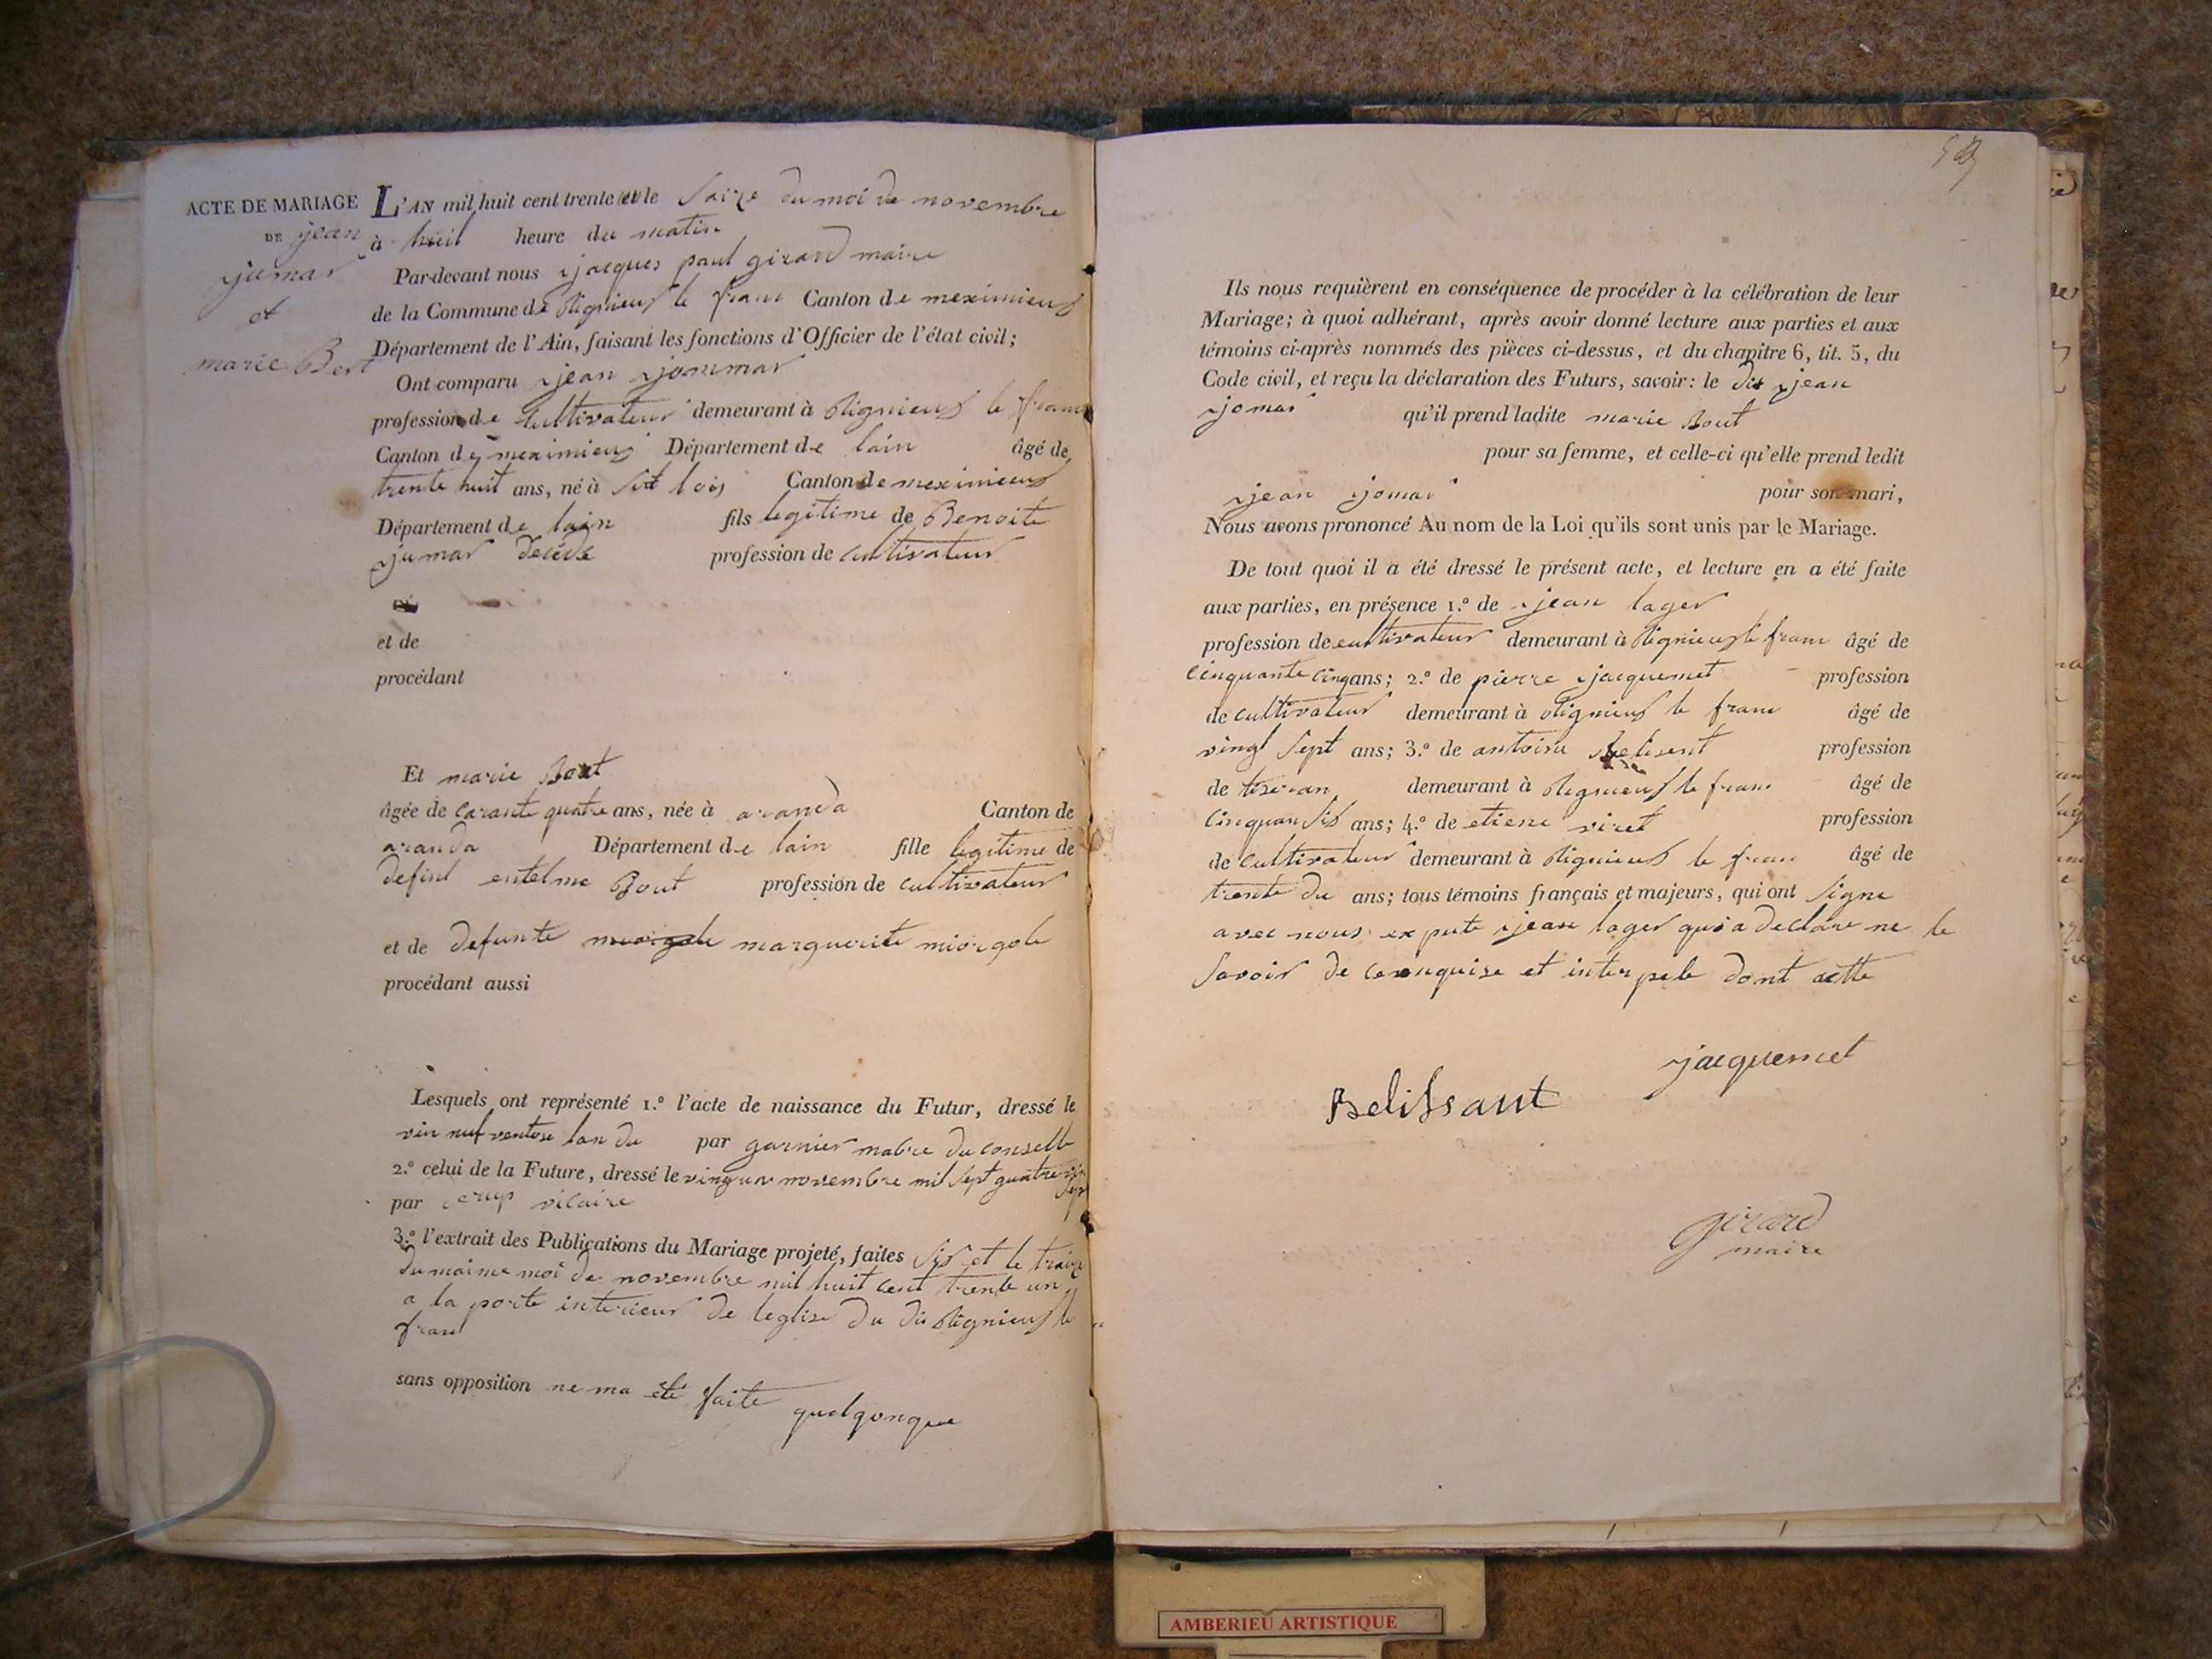 ACTE DE MARIAGE
DE jean
jumar
et
marie Bert
L'AN mil huit cent trente et le saize du moi de novembre
à huit heure du matin
Par-devant nous jacques paul girard maire
de la Commune de Rignieux le franc Canton de meximieux
Département de l'Ain, faisant les fonctions d'Officier de l'état civil;
Ont comparu jean jommar
profession de cultivateur demeurant à Rignieux le franc
Canton de meximieux Département de lain âgé de
trente huit ans, né à Canton de meximieux
Département de lain fils legitime de Benoite
jumar decede profession de cultivateur
et de
procédant
Et marie Bout
âgée de carante quatre ans, née à aranda Canton de
aranda Département de lain fille legitime de
defint entelme Bout profession de cultivateur
et de defunte marguerite miorgole
procédant aussi
Lesquels ont représenté 1.º l'acte de naissance du Futur, dressé le
vin nuf ventose lan du par garnier mabre du conselle
2.º celui de la Future, dressé le vingun novembre mil sept quatre vin
sept
par vicaire
3.º l'extrait des Publications du Mariage projeté, faites sis et le traize
du maime moi de novembre mil huit cent trente un
a la porte interieur de leglise du dis Rignieux le
franc
sans opposition ne ma été faite quelqonque
Ils nous requièrent en conséquence de procéder à la célébration de leur
Mariage; à quoi adhérant, après avoir donné lecture aux parties et aux
témoins ci-après nommés des pièces ci-dessus, et du chapitre 6, tit. 5, du
Code civil, et reçu la déclaration des Futurs, savoir: le dit jean
jomar qu'il prend ladite marie Bout
pour sa femme, et celle-ci qu'elle prend ledit
jean jomar pour son mari,
Nous avons prononcé Au nom de la Loi qu'ils sont unis par le Mariage.
De tout quoi il a été dressé le présent acte, et lecture en a été faite
aux parties, en présence 1.º de jean lager
profession de cultivateur demeurant à Rignieux le franc âgé de
cinquante cinq ans; 2.º de pierre jacquemet profession
de cultivateur demeurant à Rignieux le franc âgé de
vingt sept ans; 3.º de antoine Belisent profession
de tiseran demeurant à Rignieux le franc âgé de
cinquan sis ans; 4.º de etiene viret profession
de cultivateur demeurant à Rignieux le franc âgé de
trente du ans; tous témoins français et majeurs, qui ont signe
avec nous expete jean lager qui a declare ne le
savoir de ce enquise et interpele dont actte
jacquemet
Belissant
girard
maire
AMBERIEU ARTISTIQUE